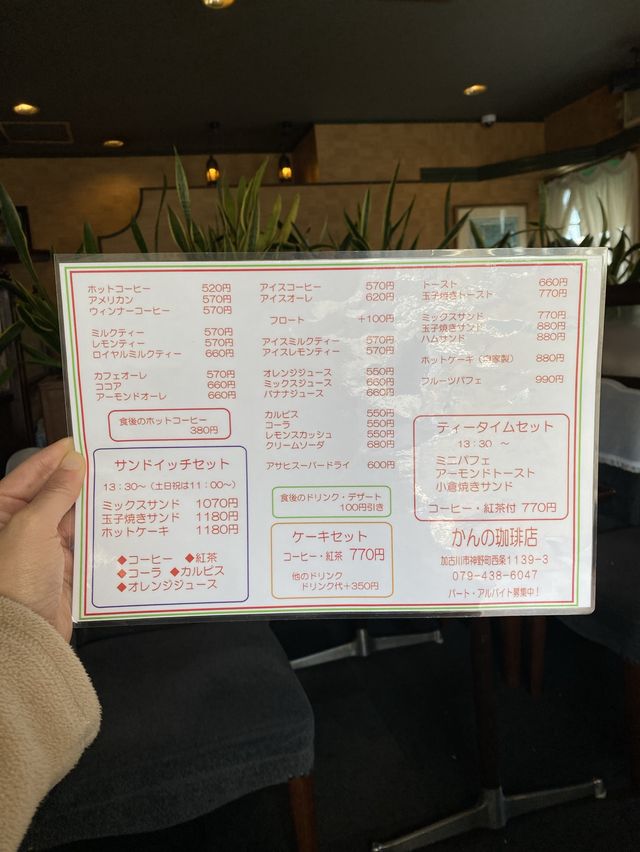 ホットコーヒー 520円
アメリカン 570円
ウィンナーコーヒー 570円
ミルクティー 570円
レモンティー 570円
ロイヤルミルクティー 660円
カフェオーレ 570円
ココア 660円
アーモンドオーレ 660円
食後のホットコーヒー
380円
サンドイッチセット
13:30～(土日祝は11:00～)
ミックスサンド 1070円
玉子焼きサンド 1180円
ホットケーキ 1180円
◆コーヒー ◆紅茶
◆コーラ ◆カルピス
◆オレンジジュース
アイスコーヒー 570円
アイスオーレ 620円
フロート +100円
アイスミルクティー 570円
アイスレモンティー 570円
オレンジジュース 550円
ミックスジュース 660円
バナナジュース 660円
カルピス 550円
コーラ 550円
レモンスカッシュ 550円
クリームソーダ 680円
アサヒスーパードライ 600円
食後のドリンク・デザート
100円引き
ケーキセット
コーヒー・紅茶 770円
他のドリンク
ドリンク代+350円
トースト 660円
玉子焼きトースト 770円
ミックスサンド 770円
玉子焼きサンド 880円
ハムサンド 880円
ホットケーキ(自家製) 880円
フルーツパフェ 990円
ティータイムセット
13:30 ～
ミニパフェ
アーモンドトースト
小倉焼きサンド
コーヒー・紅茶付 770円
かんの珈琲店
加古川市神野町西条1139-3
079-438-6047
パート・アルバイト募集中!